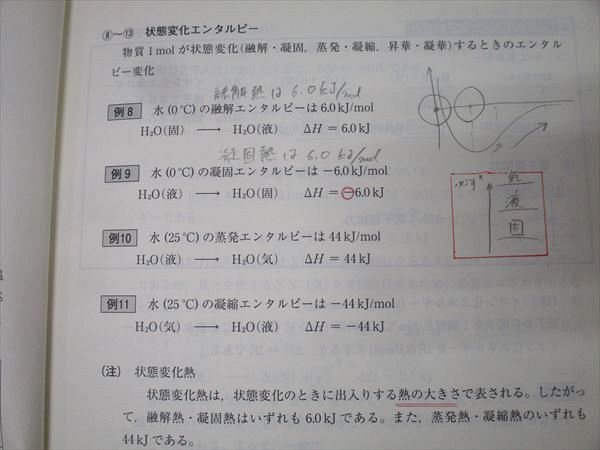 ⑧～⑬ 状態変化エンタルピー
物質1molが状態変化(融解・凝固，蒸発・凝縮，昇華・凝華)するときのエンタル
ピー変化
融解熱は 6.0kJ/mol
例8 水(0℃)の融解エンタルピーは6.0kJ/mol
H₂O(固) ⟶ H₂O(液) ΔH = 6.0kJ
凝固熱は 6.0 kJ/mol
例9 水(0℃)の凝固エンタルピーは−6.0kJ/mol
H₂O(液) ⟶ H₂O(固) ΔH = −6.0kJ
気
液
固
例10 水(25℃)の蒸発エンタルピーは44kJ/mol
H₂O(液) ⟶ H₂O(気) ΔH = 44kJ
例11 水(25℃)の凝縮エンタルピーは−44kJ/mol
H₂O(気) ⟶ H₂O(液) ΔH = −44kJ
(注) 状態変化熱
状態変化熱は，状態変化のときに出入りする熱の大きさで表される。したがっ
て，融解熱・凝固熱はいずれも6.0kJである。また，蒸発熱・凝縮熱のいずれも
44kJである。